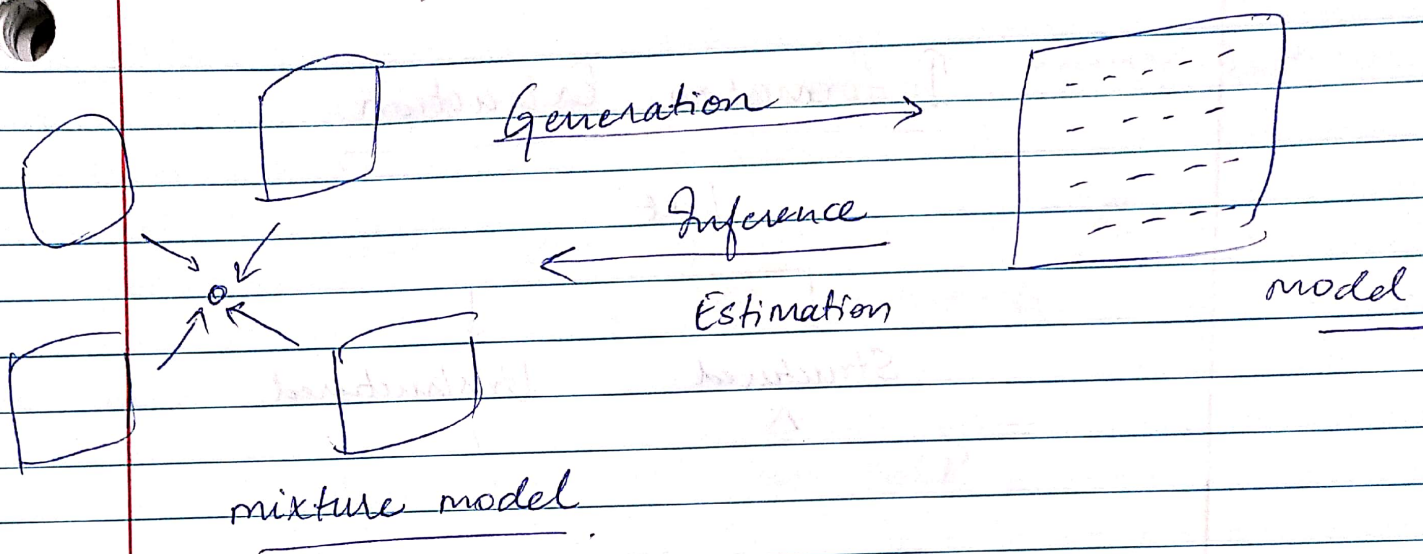 Generation
Inference
Estimation
model
mixture model.